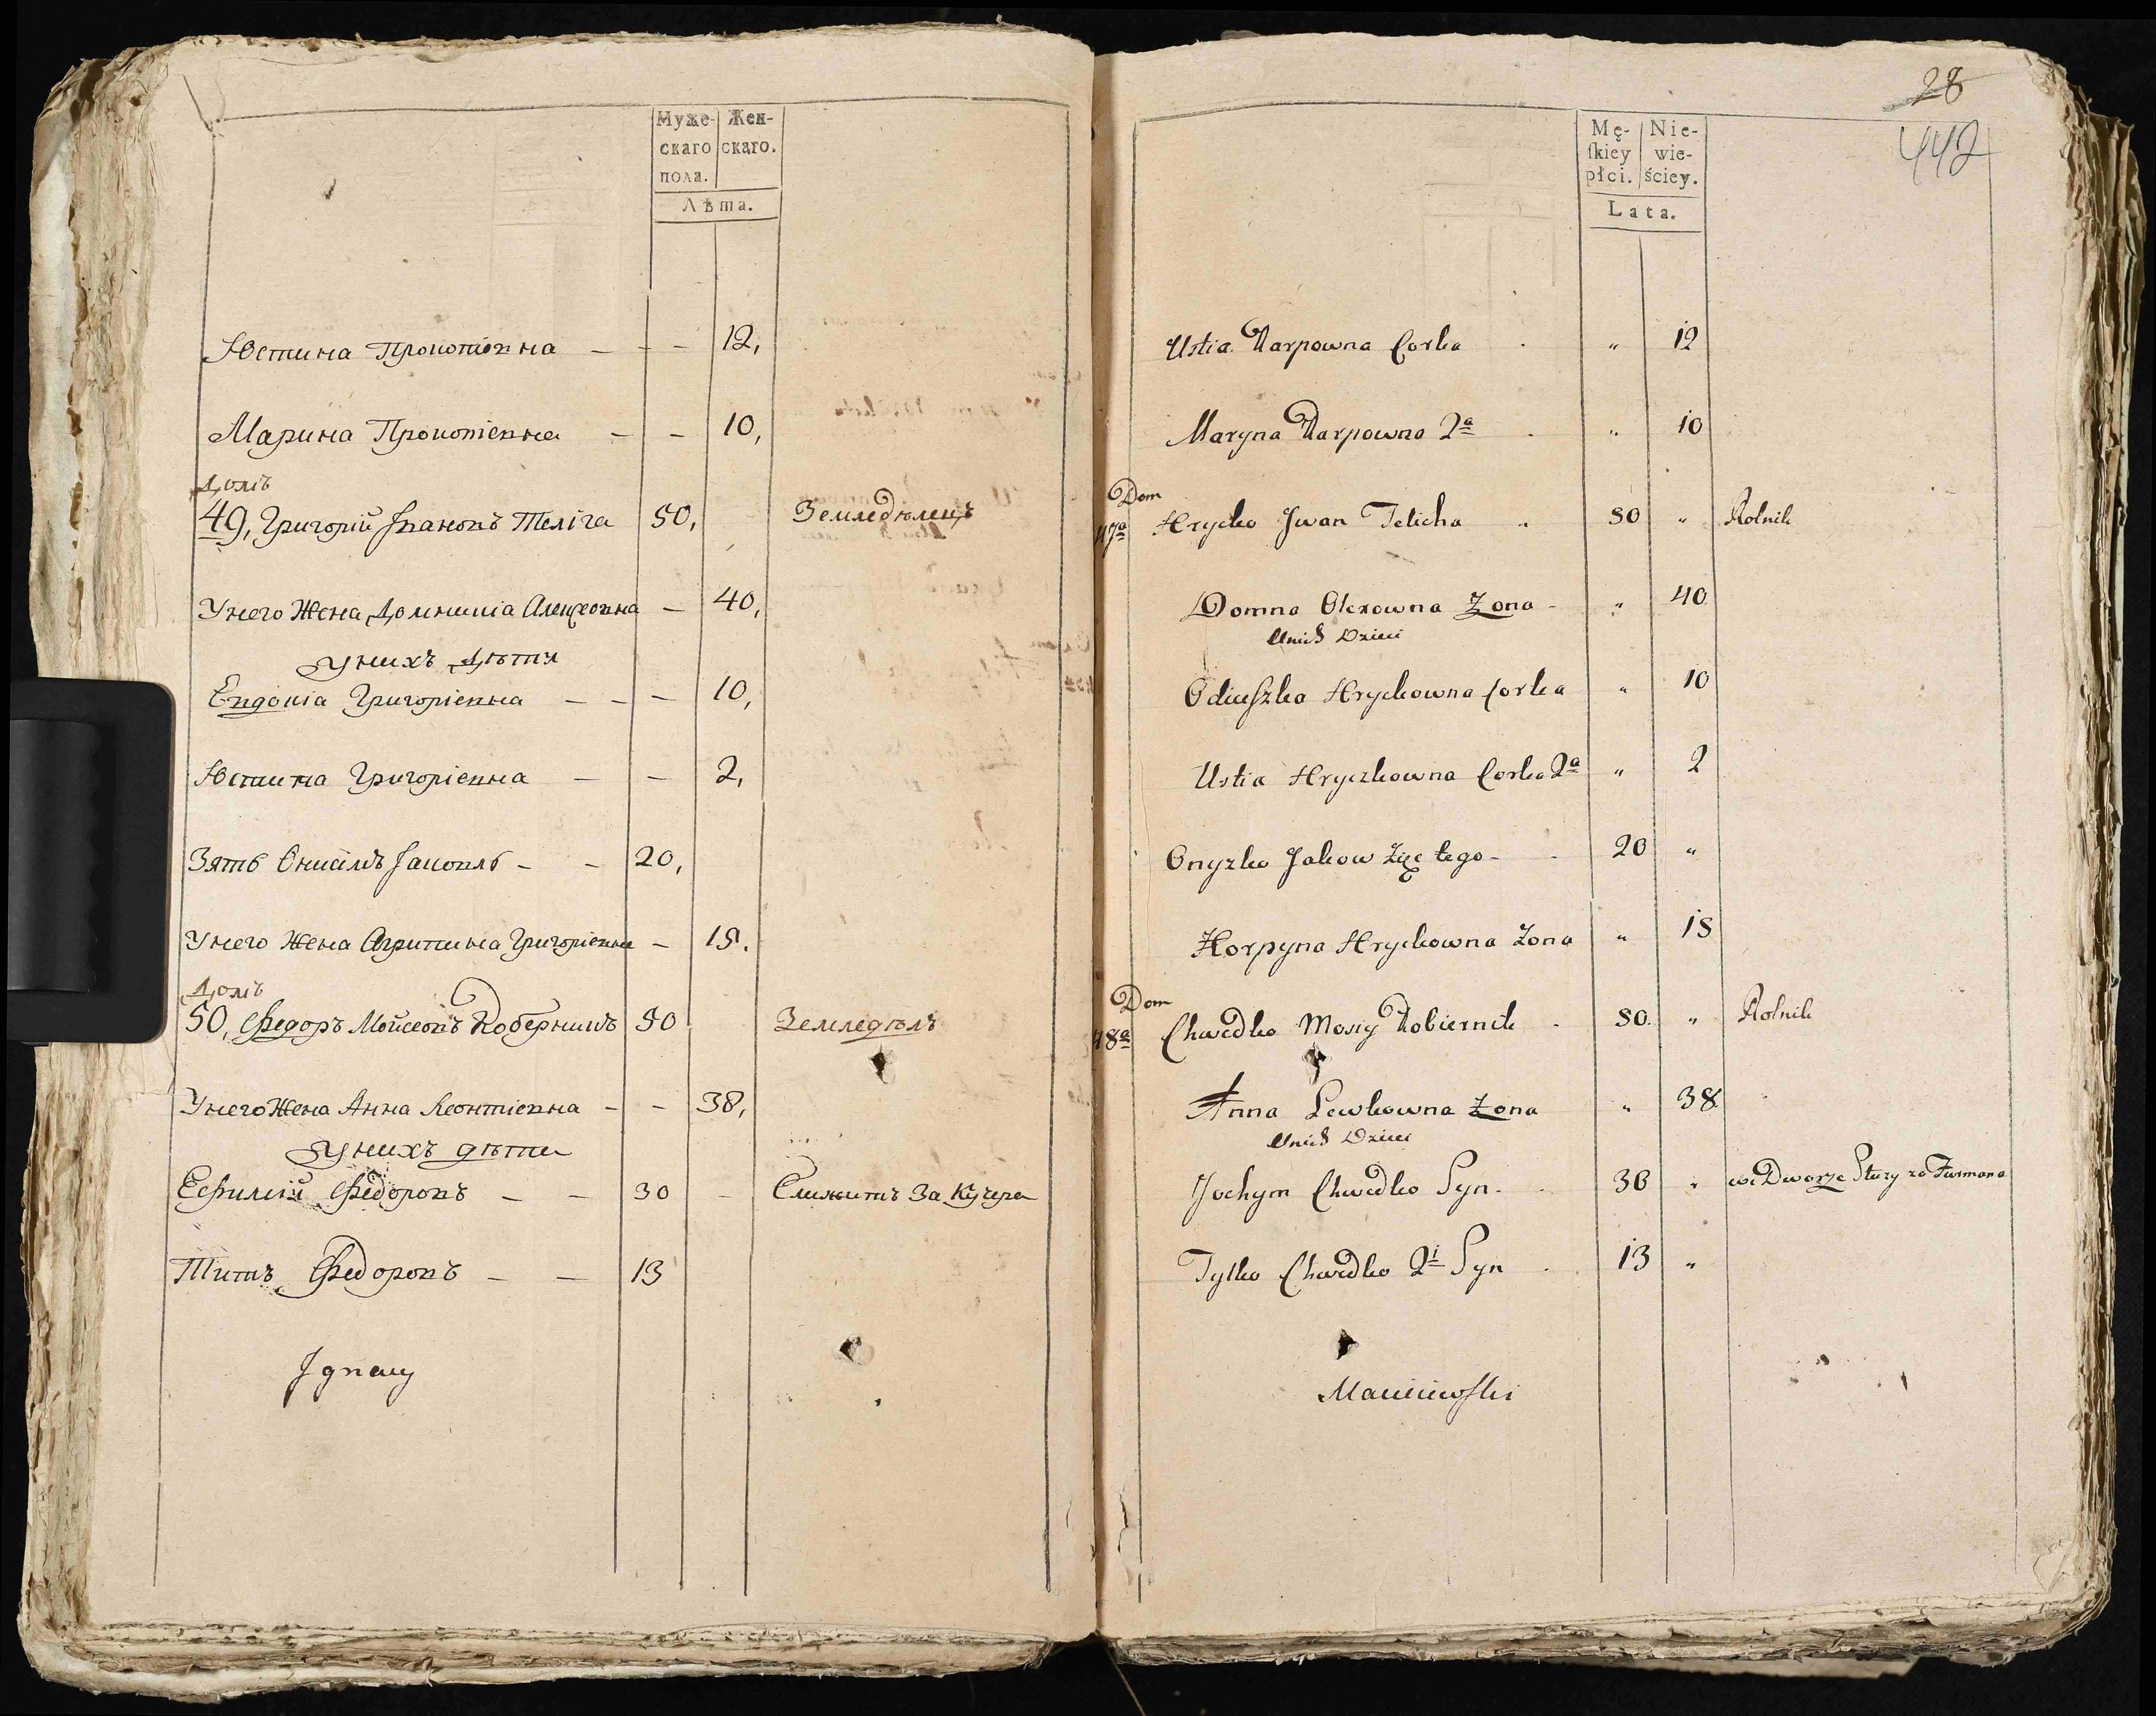 Муже- Жен-
скаго скаго.
пола.
Лѣта.
Юстина Прокопіевна — — — 12,
Марина Прокопіевна — — 10,
Домъ
49, Григорій Ивановъ Теліга 50, Земледѣлецъ
У него Жена Домникія Алексѣевна — 40,
У нихъ Дѣти
Евдокія Григоріевна — — — 10,
Юстина Григоріевна — — 2,
Зять Онисімъ Яковлѣ — — 20,
У него Жена Агрипина Григоріевна — 18.
Домъ
50, Федоръ Мойсеовъ Коберникъ 50 Земледѣлъ
У него Жена Анна Леонтіевна — — 38,
У нихъ дѣти
Ефимій Федоровъ — — 30 — Служитъ За Кучера
Титъ Федоровъ — — 13
Ignacy
28
442
Mę- Nie-
ſkiey wie-
płci. ściey.
Lata.
Ustia Karpowna Corka . " 12
Maryna Karpowna 2a . " 10
Dom
47a Hrycko Jwan Telicha " 50 " Rolnik
Domna Olexowna Zona - " 40
Unich Dzieci
Odiuszka Hryckowna Corka " 10
Ustia Hryczkowna Corka 2a " 2
Onyzko Jakow Zięc tego - - 20 "
Horpyna Hryckowna Zona " 18
Dom
48a Chwedko Mosiy Kobiernik - 50 " Rolnik
Anna Lewkowna Zona " 38
Unich Dzieci
Jochym Chwedko Syn - - 30 " we Dworze Słuzy za Furmana
Tytko Chwedko 2i Syn - 13 "
Maciiewſki